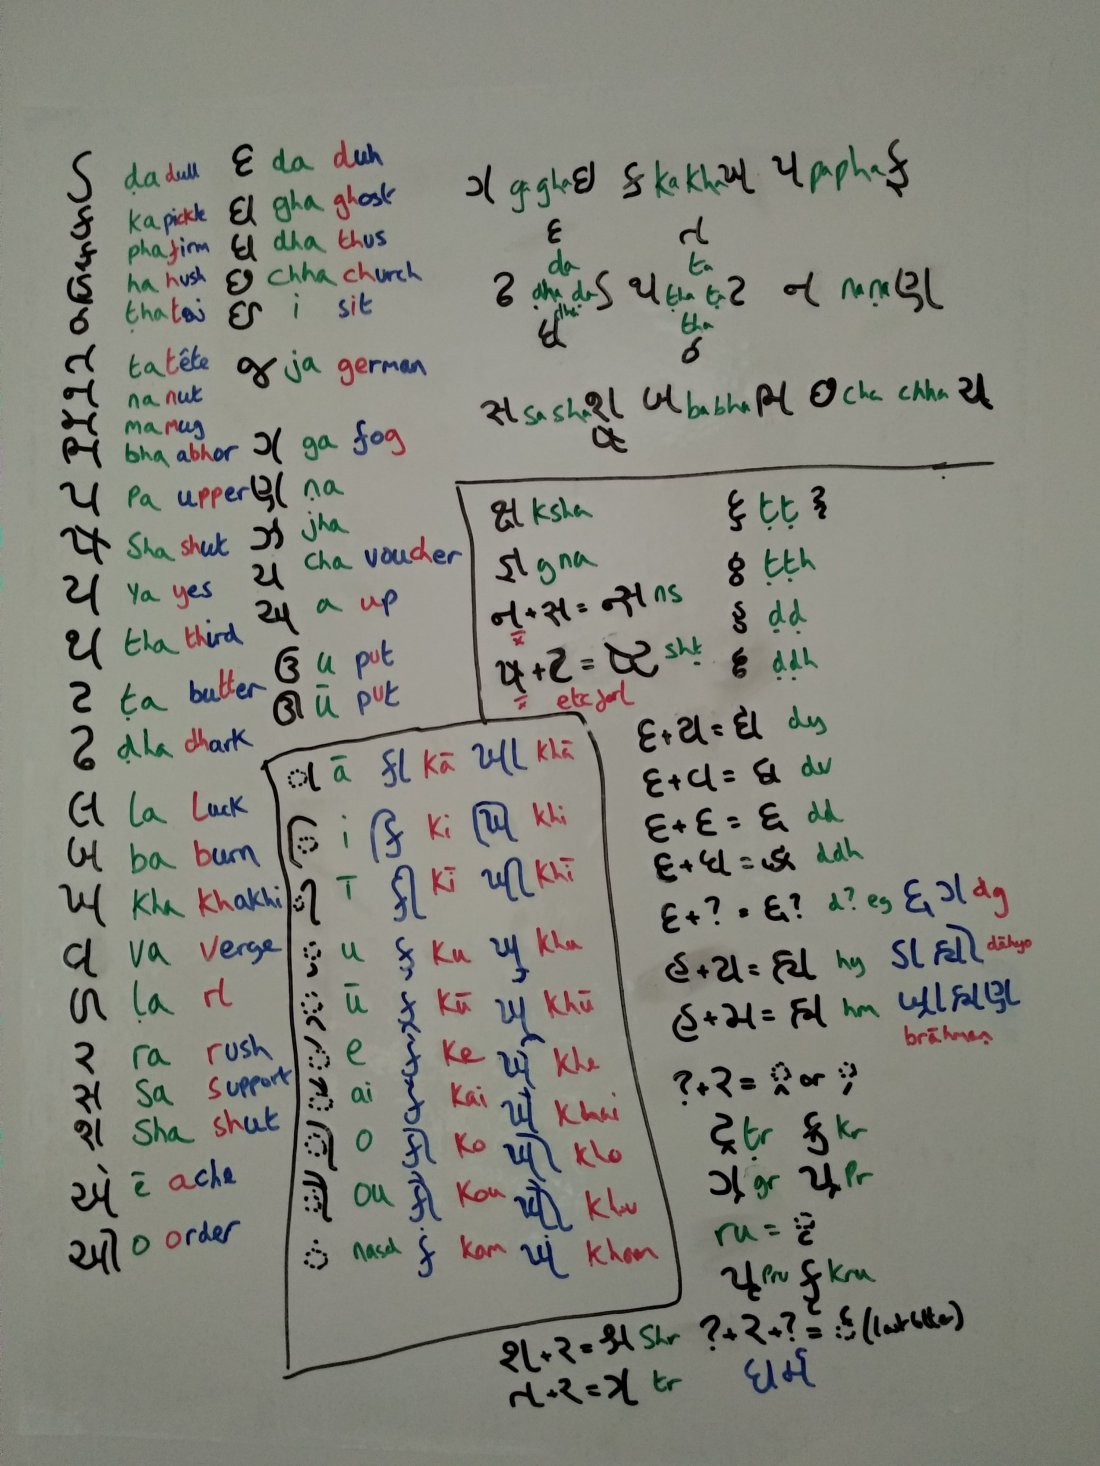 ડ ḍa dull
ક ka pickle
ફ pha firm
હ ha hush
ઠ ṭha tai
ત ta tête
ન na nut
મ ma mug
ભ bha abhor
પ pa upper
ષ sha shut
ય ya yes
થ tha third
ટ ṭa butter
ઢ ḍha dhark
લ la luck
બ ba burn
ખ kha khakhi
વ va verge
ળ ḷa rl
ર ra rush
સ sa support
શ sha shut
એ ē ache
ઓ o order
દ da duh
ઘ gha ghost
ધ dha thus
છ chha church
ઇ i sit
જ ja german
ગ ga fog
ણ ṇa
ઝ jha
ચ cha voucher
અ a up
ઉ u put
ઊ ū put
ગ ga gha ઘ ક ka kha ખ પ pa pha ફ
દ ત
da ta
ઢ ḍha ḍa ડ થ tha ṭa ટ ન na ṇa ણ
dha tha
ધ ઠ
સ sa sha શ બ ba bha ભ છ cha chha ચ
ષ
ક્ષ ksha
જ્ઞ gna
ન+સ=ન્સ ns
ષ+ટ=ષ્ટ shṭ
ટ્ટ ṭṭ
ઠ્ઠ ṭṭh
ડ્ડ ḍḍ
ઢ્ઢ ḍḍh
ા ā કા kā ખા khā
િ i કિ ki ખિ khi
ી ī કી kī ખી khī
ુ u કુ ku ખુ khu
ૂ ū કૂ kū ખૂ khū
ે e કે ke ખે khe
ૈ ai કૈ kai ખૈ khai
ો o કો ko ખો kho
ૌ ou કૌ kou ખૌ
ં nasal કં kam ખં kham
દ+ય=દ્ય dy
દ+વ=દ્વ dv
દ+દ=દ્દ dd
દ+ધ=દ્ધ ddh
દ+?=દ્? d? eg દ્ગ dg
હ+ય=હ્ય hy ડાહ્યો dāhyo
હ+મ=હ્મ hm બ્રાહ્મણ
brāhmaṇ
?+ર=્ર or ્ર
ટ્ર ṭr ક્ર kr
ગ્ર gr પ્ર pr
ru = ૃ
પૃ pru કૃ kru
શ+ર=શ્ર shr ?+ર+?=ર્ (last letter)
ત+ર=ત્ર tr ધર્મ